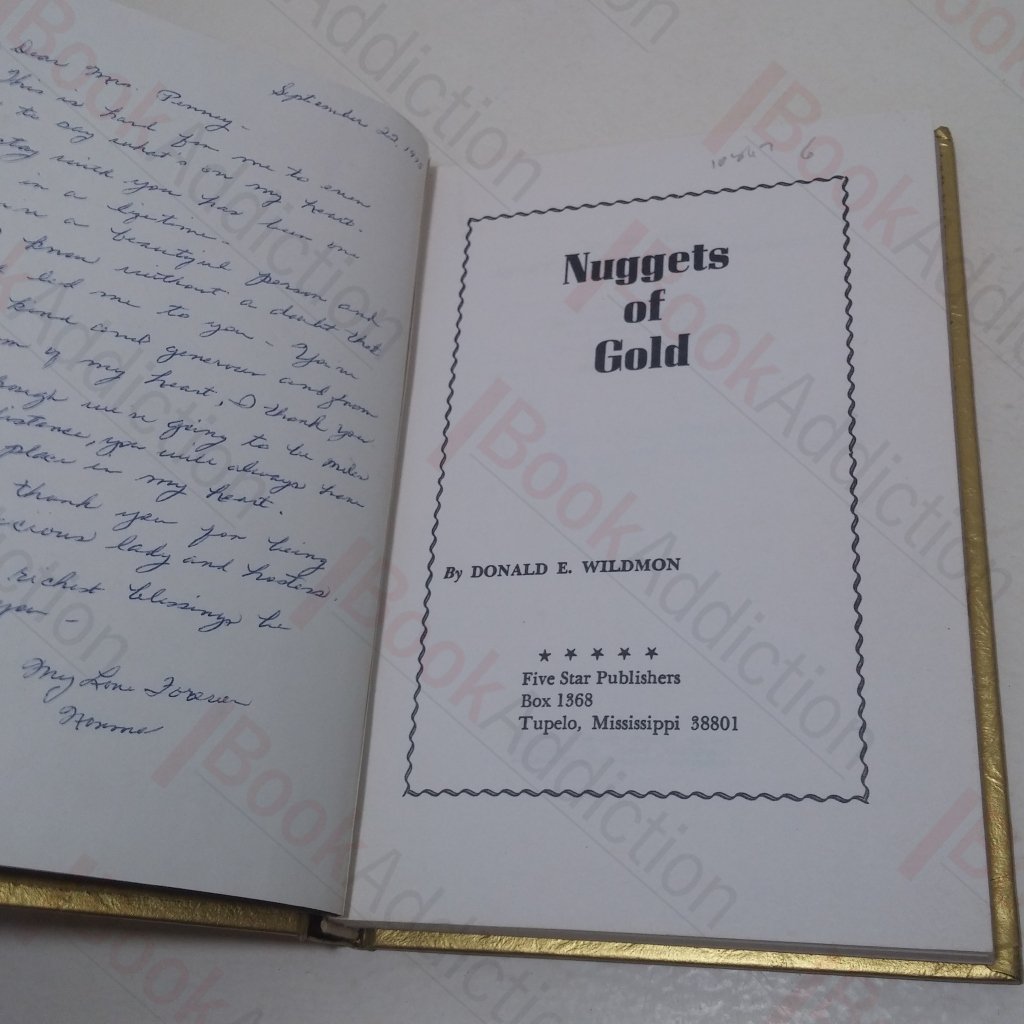 September 22, 1975
Dear Mrs. Penney -
This is hard for me to even
to say what's on my heart.
stay with you has been one
in a lifetime.
a beautiful person and
know without a doubt that
led me to you - You're
kind and generous and from
of my heart, I thank you
we're going to be miles
distance, you will always have
place in my heart.
thank you for being
lady and hostess.
richest blessings be
you -
My Love Forever
Norma
6
Nuggets
of
Gold
By DONALD E. WILDMON
★ ★ ★ ★ ★
Five Star Publishers
Box 1368
Tupelo, Mississippi 38801
BookAddiction